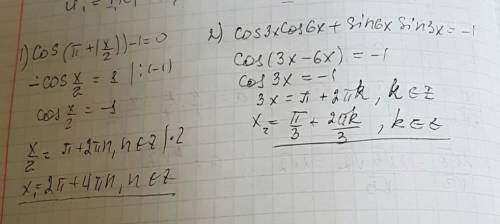 1) cos(π+(x/2))-1=0
-cos x/2 = 1 |:(-1)
cos x/2 = -1
x/2 = π+2πn, n∈z |·2
x₁=2π+4πn, n∈z
2) cos3xcos6x + sin6x sin3x=-1
cos(3x-6x) = -1
cos 3x = -1
3x = π + 2πk, k∈z
x₂ = π/3 + 2πk/3, k∈z